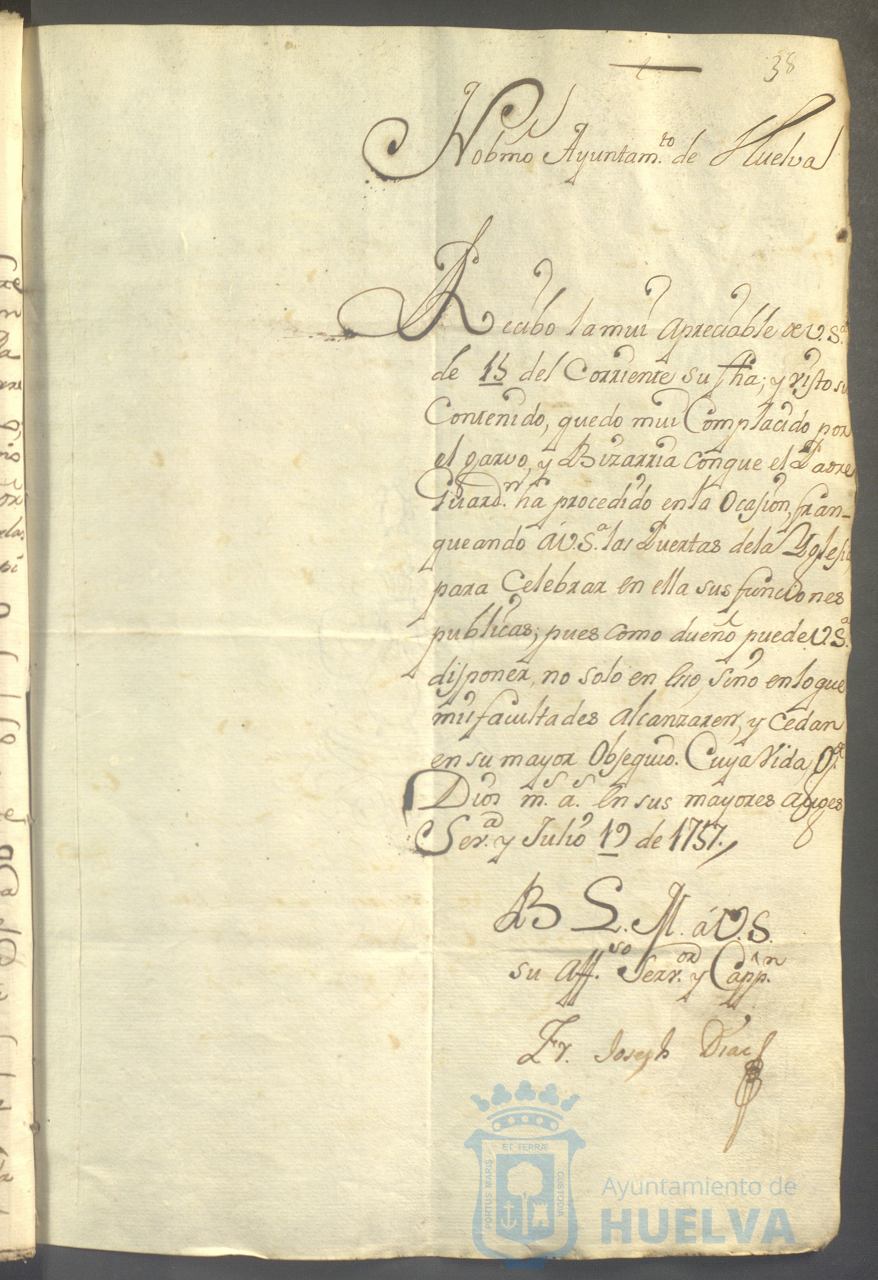 38
Nobmo Ayuntam.to de Huelva
Recibo la mui apreciable de V.S.a
de 15 del Corriente su fha; y visto su
Contenido, quedo mui Complacido por
el garvo, y Bizarria conque el Padre
Guardn. ha procedido en la Ocasion, fran-
queando á V.S.a las Puertas dela Yglesia
para Celebrar en ella sus funciones
publicas; pues como dueño puede V.S.a
disponer, no solo en esso, sino en loque
mis facultades alcanzaren, y cedan
en su mayor Obsequio. Cuya Vida g.e
Dios m.s a.s en sus mayores auges
Sev.a y Julio 19 de 1757.
B L. M. á V.S.
su aff.so Serv.or y Capp.n
Fr. Joseph Diaz
ET TERRÆ
PORTUS MARIS
CUSTODIA
Ayuntamiento de
HUELVA